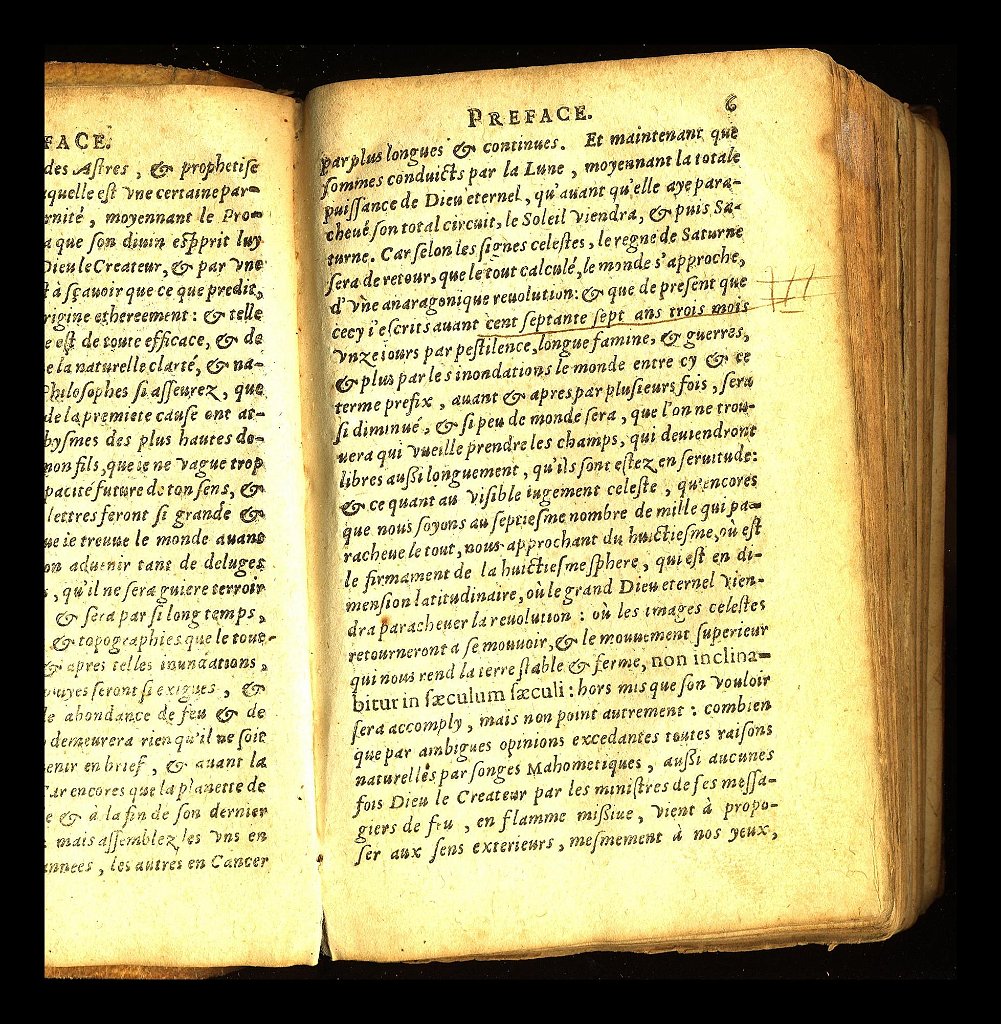 FACE.
des Astres, & prophetise
quelle est vne certaine par-
rnité, moyennant le Pro-
a que son diuin espprit luy
Dieu le Createur, & par vne
t à sçauoir que ce que predit,
rigine ethereement: & telle
e est de toute efficace, & de
e la naturelle clarté, & na-
Philosophes si asseurez, que
de la premiete cause ont at-
bysmes des plus hautes do-
mon fils, que ie ne vague trop
pacité future de ton sens, &
lettres feront si grande &
ue ie treuue le monde auant
on aduenir tant de deluges
s, qu'il ne sera guiere terroir
& sera par si long temps,
& topographies que le tout
& apres telles inundations,
pluyes seront si exigues, &
le abondance de feu & de
demeurera rien qu'il ne soit
enir en brief, & auant la
Car encores que la planette de
e & à la fin de son dernier
mais assemblez les vns en
annees, les autres en Cancer
PREFACE. 6
par plus longues & continues. Et maintenant que
sommes conduicts par la Lune, moyennant la totale
puissance de Dieu eternel, qu'auant qu'elle aye para-
cheué son total circuit, le Soleil viendra, & puis Sa-
turne. Car selon les signes celestes, le regne de Saturne
sera de retour, que le tout calculé, le monde s'approche,
d'vne anaragonique reuolution: & que de present que
cecy i'escrits auant cent septante sept ans trois mois
vnze iours par pestilence, longue famine, & guerres,
& plus par les inondations le monde entre cy & ce
terme prefix, auant & apres par plusieurs fois, sera
si diminué, & si peu de monde sera, que l'on ne trou-
uera qui vueille prendre les champs, qui deuiendront
libres aussi longuement, qu'ils sont estez en seruitude:
& ce quant au visible iugement celeste, qu'encores
que nous soyons au septiesme nombre de mille qui pa-
racheue le tout, nous approchant du huictiesme, où est
le firmament de la huictiesme sphere, qui est en di-
mension latitudinaire, où le grand Dieu eternel vien-
dra paracheuer la reuolution: où les images celestes
retourneront a se mouuoir, & le mouuement superieur
qui nous rend la terre stable & ferme, non inclina-
bitur in sæculum sæculi: hors mis que son vouloir
sera accomply, mais non point autrement: combien
que par ambigues opinions excedantes toutes raisons
naturelles par songes Mahometiques, aussi aucunes
fois Dieu le Createur par les ministres de ses messa-
giers de feu, en flamme missiue, vient à propo-
ser aux sens exterieurs, mesmement à nos yeux,